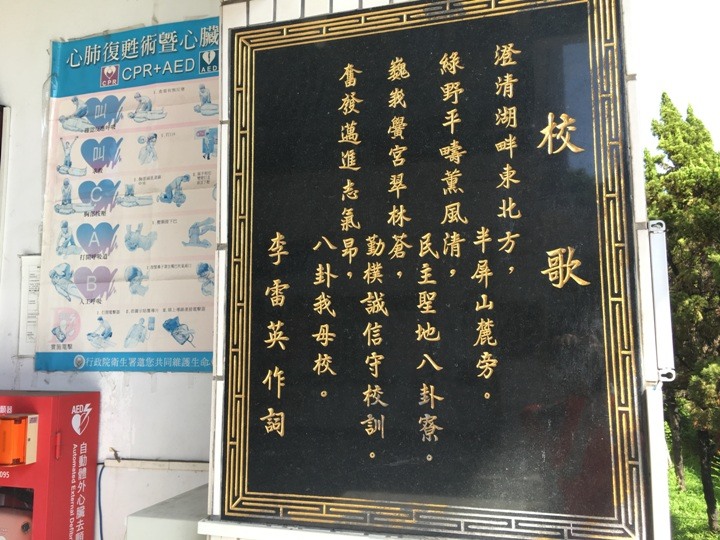 校歌
澄清湖畔東北方，半屏山麓旁。
綠野平疇薰風清，民主聖地八卦寮。
巍峩黌宮翠林蒼，勤樸誠信守校訓。
奮發邁進志氣昂，八卦我母校。
李雷英作詞
心肺復甦術暨心臟
CPR CPR+AED AED
叫
叫
C
胸部按壓
A
打開呼吸道
B
人工呼吸
行政院衛生署邀您共同維護生命
AED
自動體外心臟去顫
Automated External Defibr
095